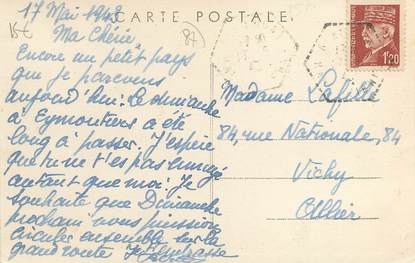 17 Mai 1942
CARTE POSTALE
Ma Chérie
Encore un petit pays
que je parcours
aujourd'hui. Le dimanche
à Eymoutiers a été
long à passer. J'espère
que tu ne t'es pas ennuyé
autant que moi. Je
souhaite que Dimanche
prochain nous puissions
circuler ensemble sur la
grand route Je t'embrasse
Madame Lafitte
84, rue Nationale, 84
Vichy
Allier
1f20